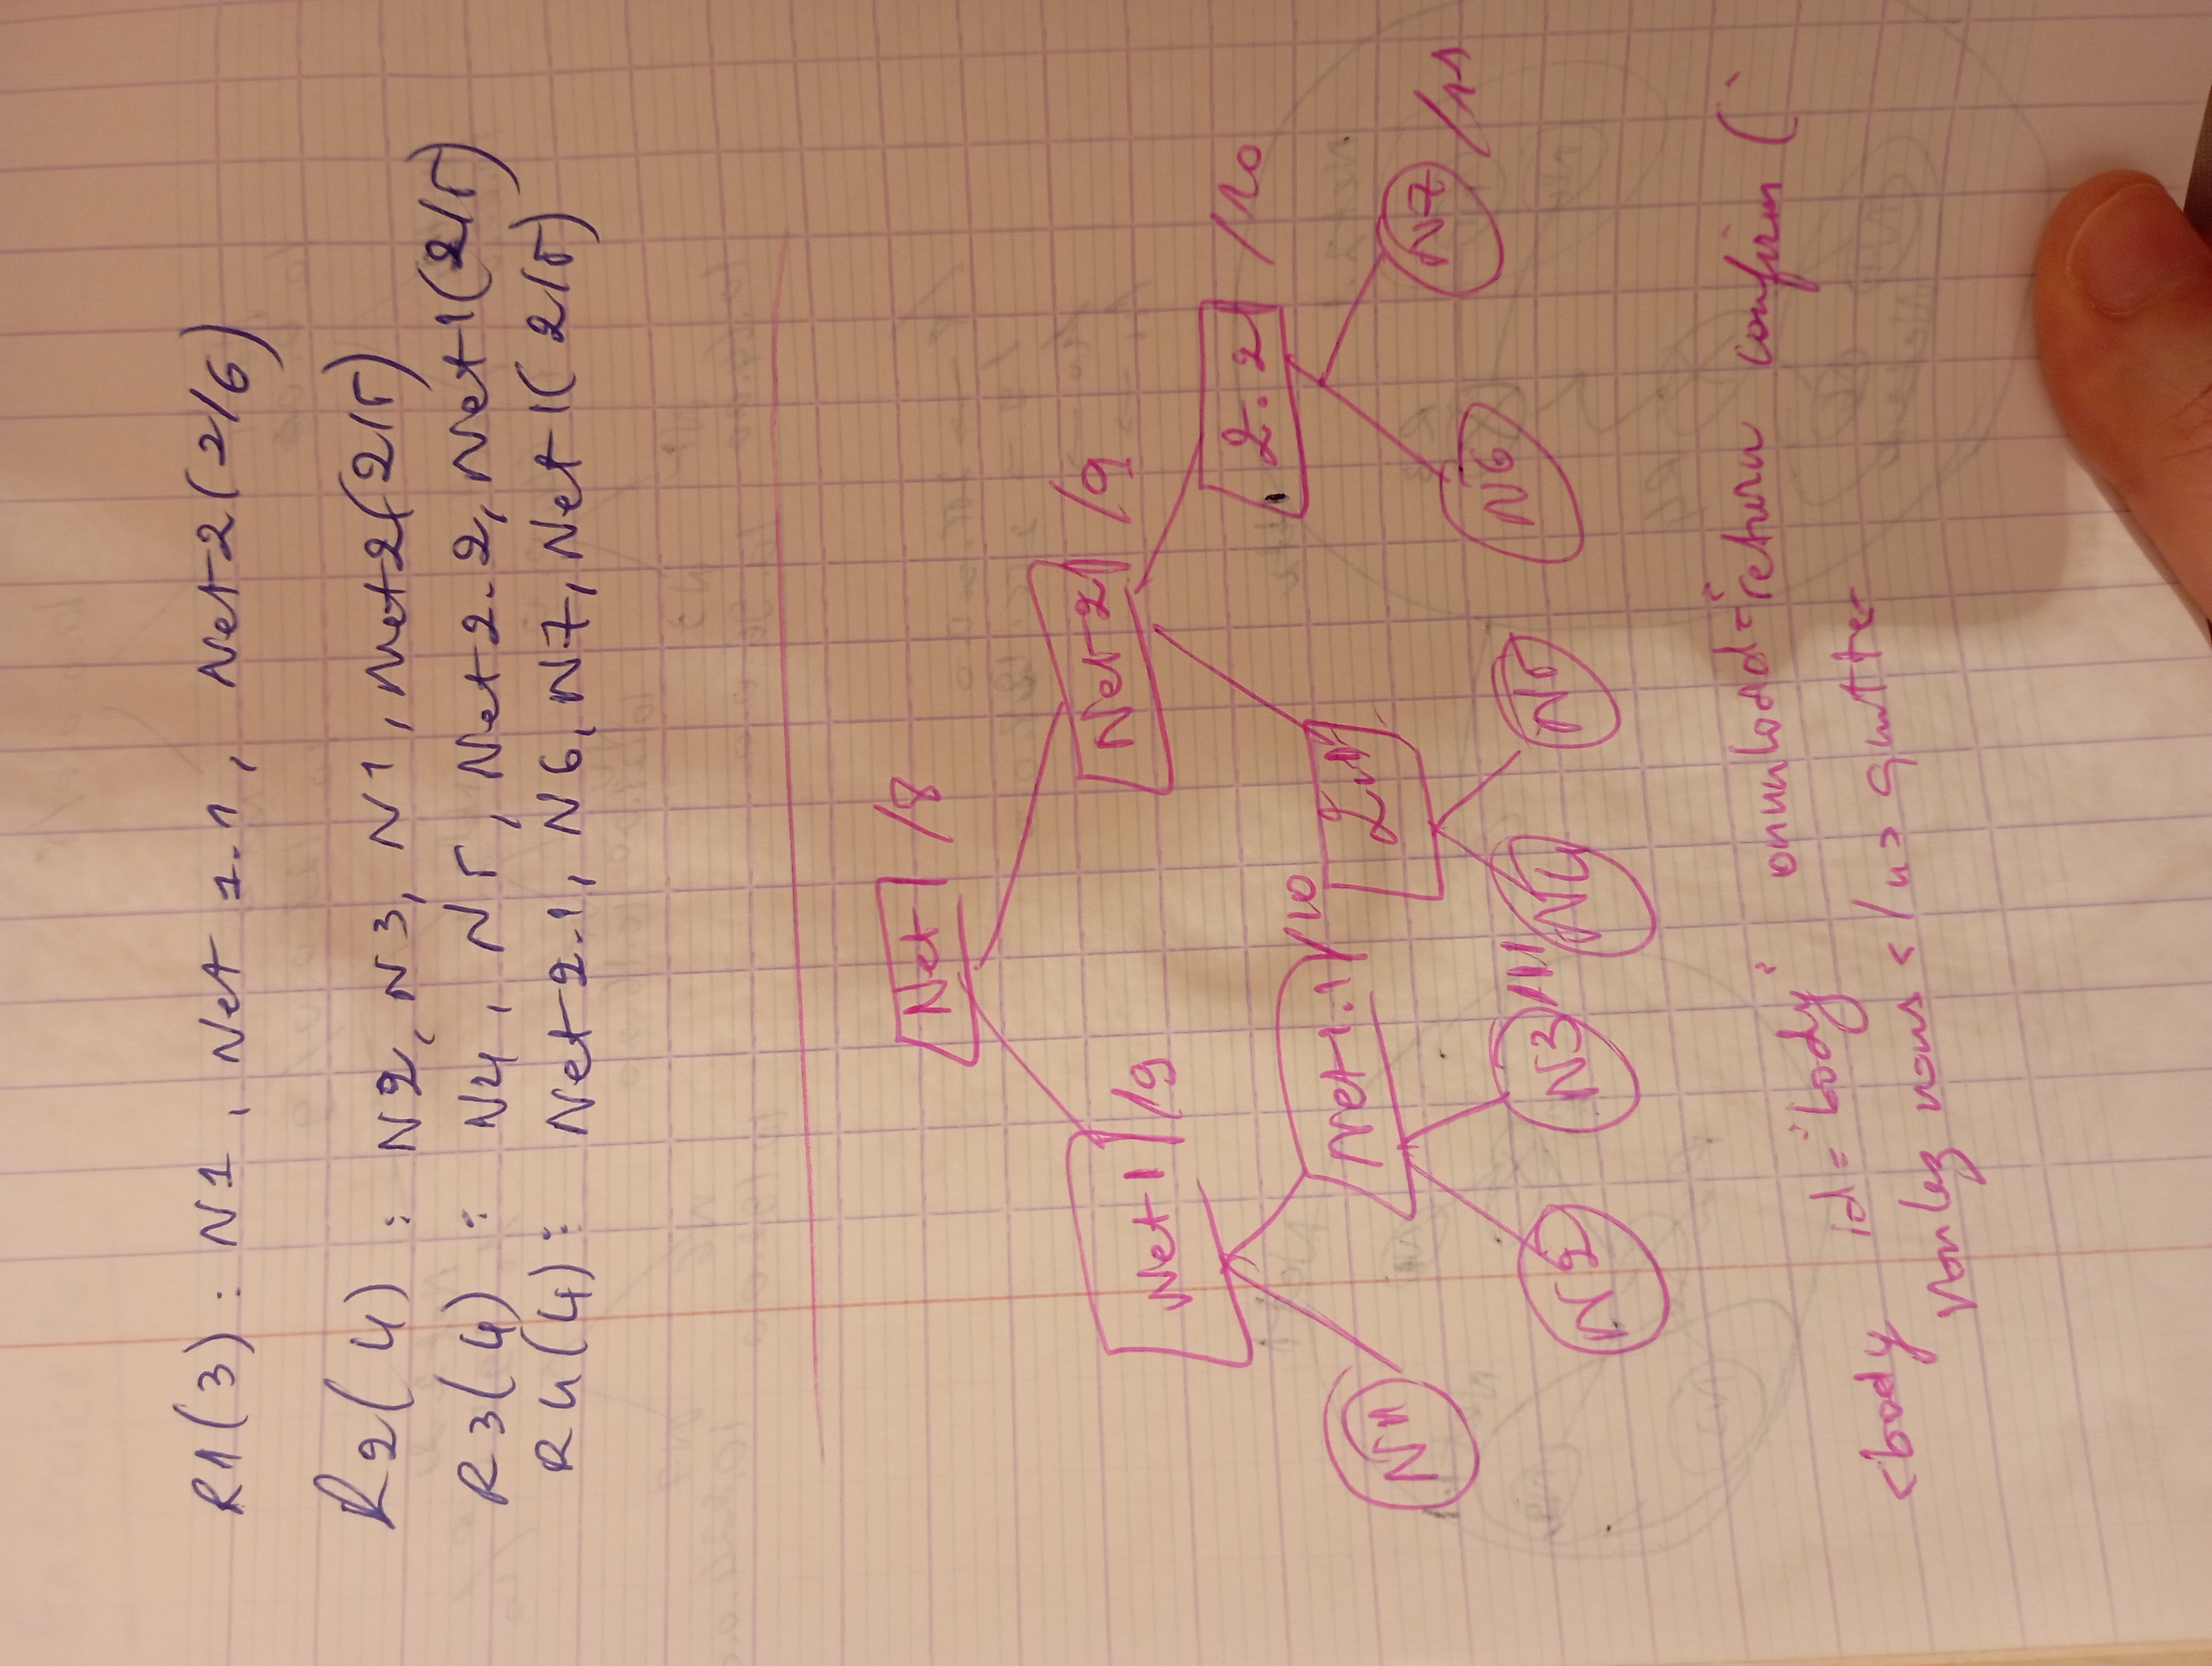 R1(3) : N1, Net 1.1, Net-2(2/6)
R2(4) : N2, N3, N1, Net2(2/5)
R3(4) : N4, N5, Net2.2, Net-1(2/5)
R4(4) : Net-2.1, N6, N7, Net-1(2/5)
Net /8
Net 1 /9
Net-2 /9
Net 1.1 /10
2.1
2.2 /10
N1
N2
N3 /11
N4
N5
N6
N7 /11
<body id="body" onunload="return confirm('
voulez vous </u> quitter